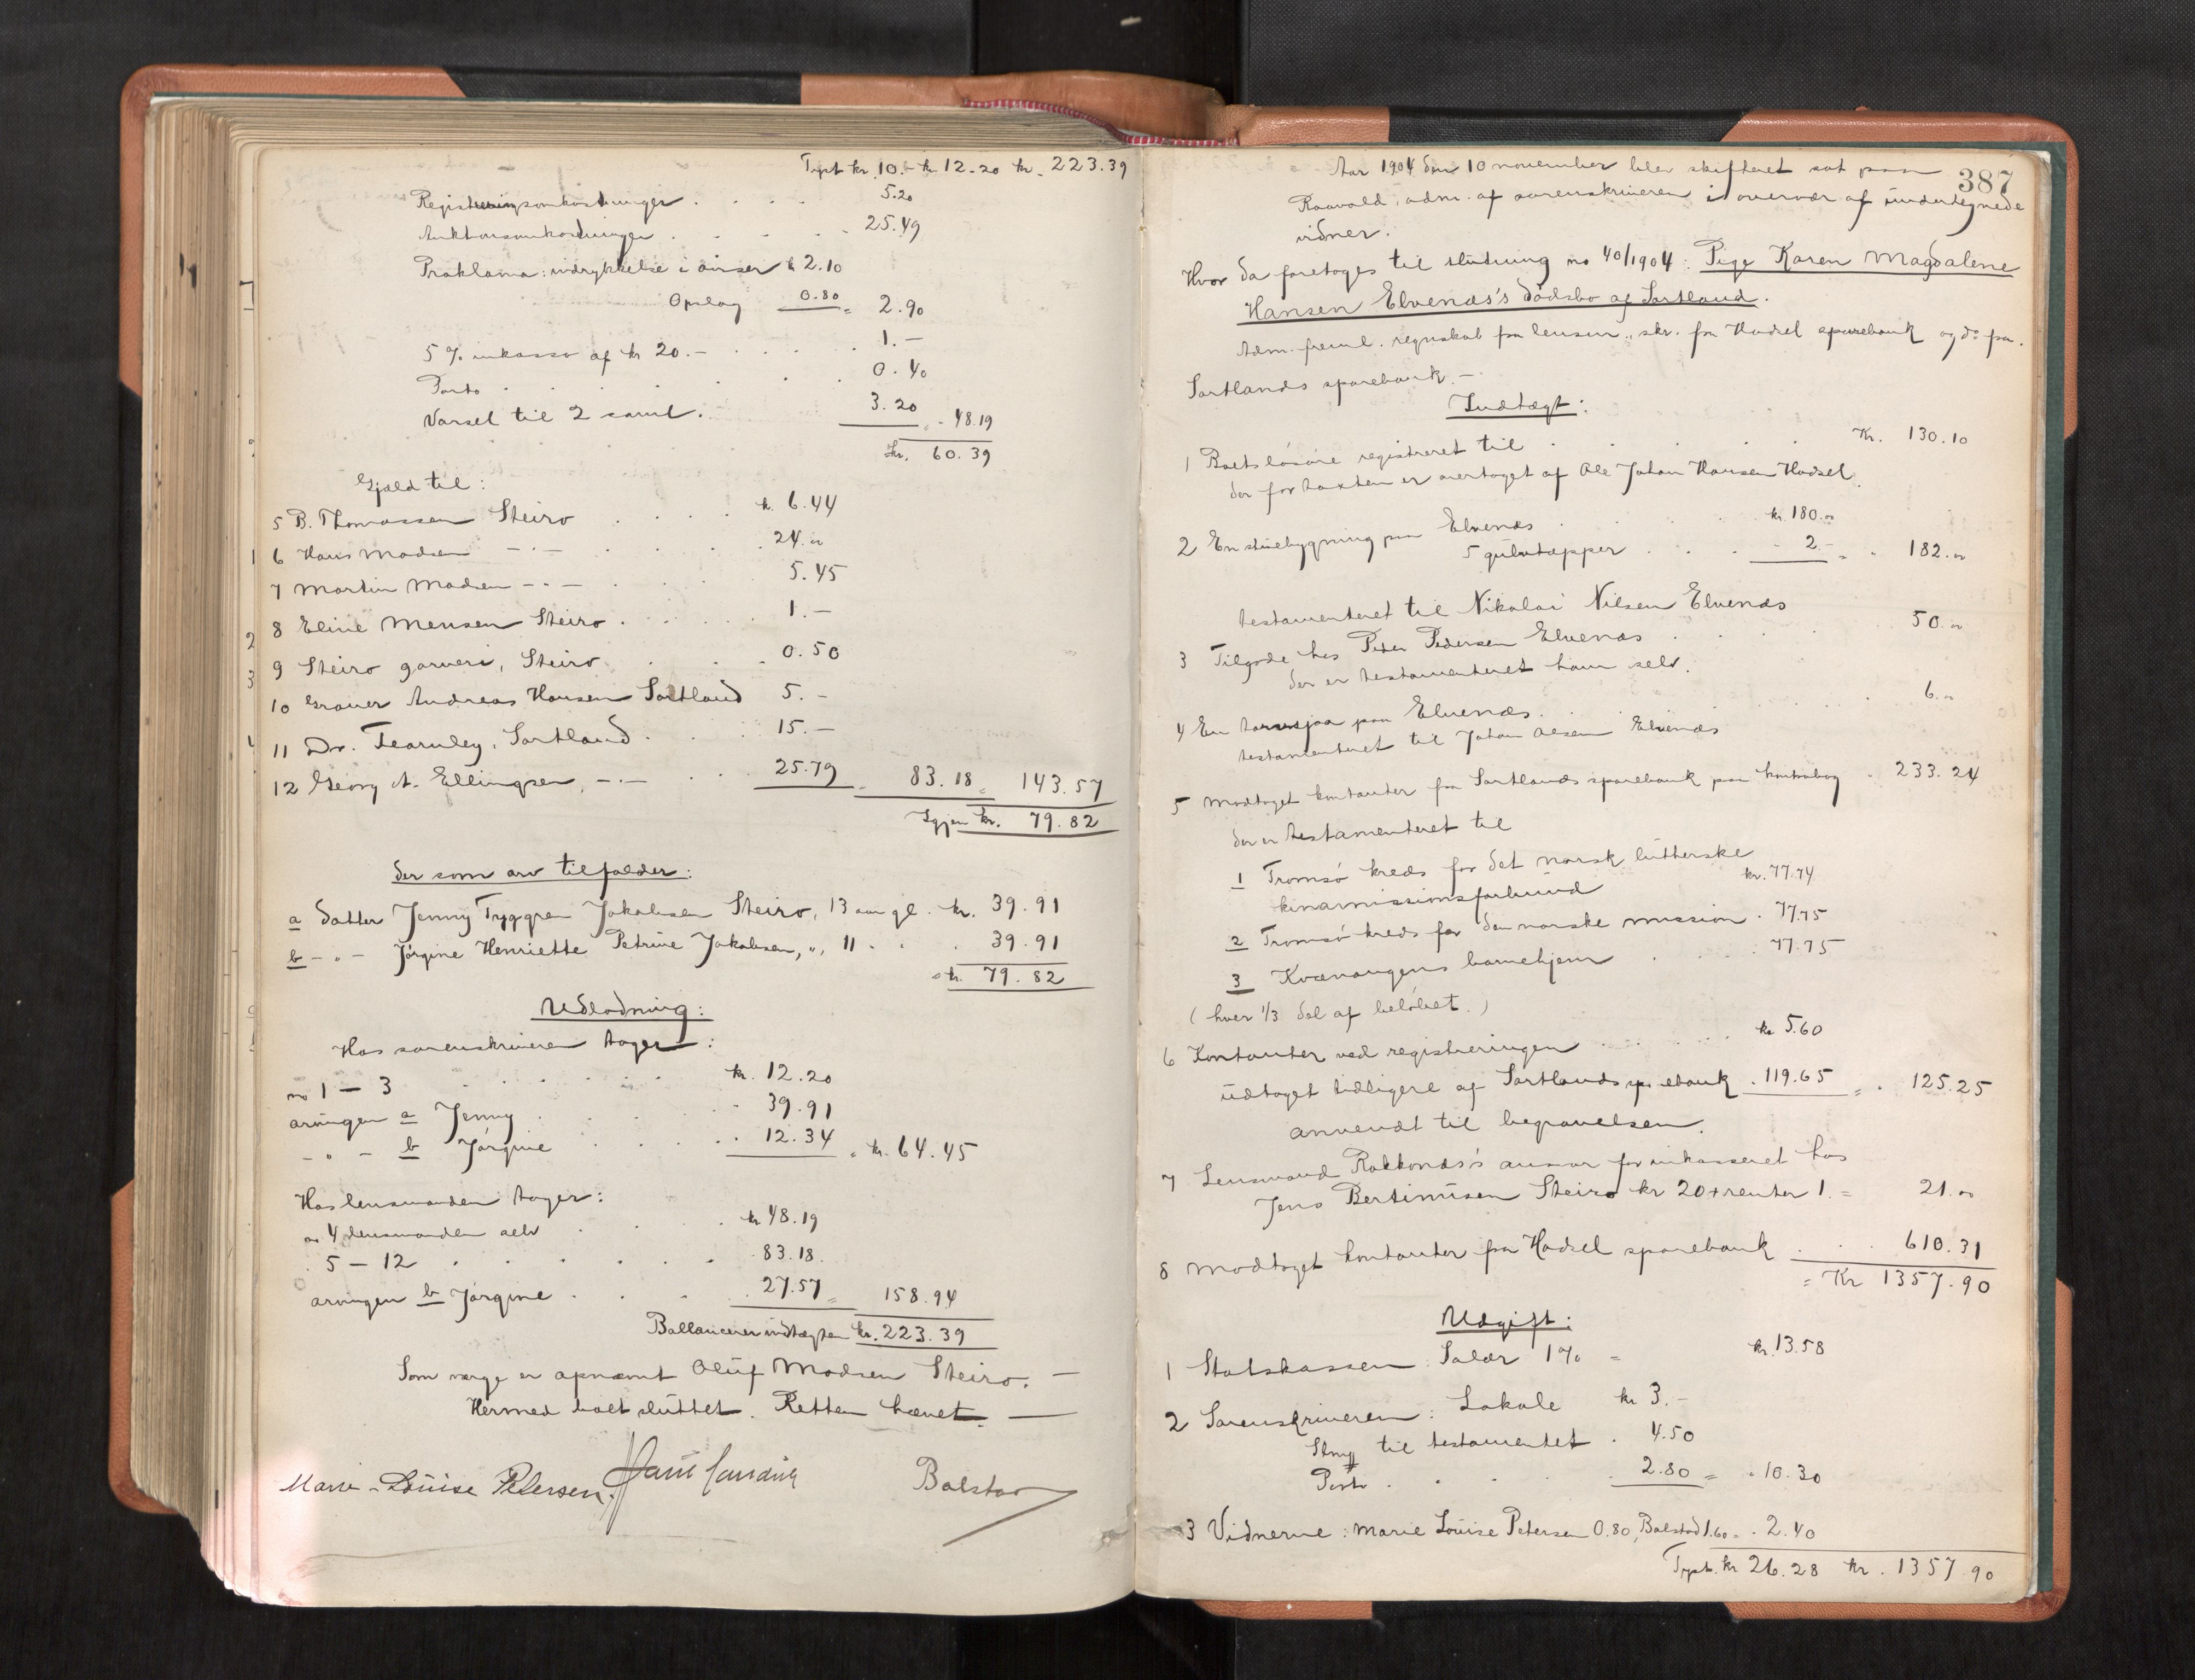 Tpt kr. 10.- kr. 12.20 kr. 223.39
Registreringsomkostninger . . . . 5.20
Auktionsomkostninger . . . . 25.49
Proklama: indrykkelse i aviser k 2.10
Opslag 0.80 = 2.90
5 % inkasso af kr 20.- . . . . 1.-
Porto . . . . . . . 0.40
Varsel til 2 saml. 3.20 = - 48.19
kr. 60.39
Gjæld til:
5 B. Thomassen Steiro . . . . k. 6.44
6 Hans Madsen -"- . . . . 24.00
7 Martin Madsen -"- . . . 5.45
8 Eline Mensen Steiro . . . . 1.-
9 Steiro garveri, Steiro . . . 0.50
10 Graver Andreas Hansen Sortland 5.-
11 Dr. Fearnley, Sortland . . . 15.-
12 Georg A. Ellingsen, -"- . . 25.79 = 83.18 = 143.57
Igjen kr. 79.82
der som arv tilfalder:
a datter Jenny Tryggra Jakobsen Steiro, 13 aar gl. kr. 39.91
b -"- Jørgine Henriette Petrine Jakobsen, ", 11 - . . 39.91
= kr. 79.82
Udlodning:
Hos sorenskriveren tager:
no 1 - 3 . . . . . . kr. 12.20
arvingen a Jenny . . . . - 39.91
-"- b Jørgine . . . . . 12.34 = kr. 64.45
Hos lensmanden tager:
no 4 lensmanden selv . . . . kr 48.19
. 5 - 12 . . . . . . . 83.18
arvingen b Jørgine . . . . 27.57 = 158.94
Ballancerer indtægten kr. 223.39
Som verge er opnævnt Oluf Madsen Steiro. -
Hermed boet sluttet. Retten hævet. -
Marie-Louise Petersen. Balstad
387
Aar 1904 den 10 november blev skifteret sat paa
Raavold, adm. af sorenskriveren i overvær af undertegnede
vidner.
Hvor da foretoges til slutning no 40/1904: Pige Karen Magdalene
Hansen Elvenæs's dødsbo af Sortland.
Adm. freml. regnskab fra lensm., skr. fra Hadsel sparebank og do fra
Sortlands sparebank. -
Indtægt:
1 Boets løsøre registreret til . . . . . Kr. 130.10
der for taxten er overtaget af Ole Johan Hansen Hadsel.
2 En stuebygning paa Elvenæs . . . . kr. 180.00
5 gulvtæpper . . . . - 2.- = - 182.00
testamenteret til Nikolai Nilsen Elvenæs
3 Tilgode hos Peder Pedersen Elvenæs . . . . 50.00
der er testamenteret ham selv.
4 En torvsjaa paa Elvenæs . . . . . . . 6.00
testamenteret til Johan Olsen Elvenæs
5 Modtaget kontanter fra Sortlands sparebank paa kontrabog . 233.24
der er testamenteret til
1 Tromsø kreds for det norsk lutherske
kinamissionsforbund kr. 77.74
2 Tromsø kreds for den norske mission . 77.75
3 Kvænangens barnehjem . . . . 77.75
(hver 1/3 del af beløbet.)
6 Kontanter ved registreringen . . . . . kr 5.60
udtaget tidligere af Sortlands sparebank . 119.65 = . 125.25
anvendt til begravelsen.
7 Lensmand Rokkonæs's ansvar for inkasseret hos
Jens Bertinussen Steiro kr 20 + renter 1. = 21.00
8 Modtaget kontanter fra Hadsel sparebank . . . 610.31
= Kr 1357.90
Udgift:
1 Statskassen: Salær 1% = kr. 13.58
2 Sorenskriveren: Lokale kr 3.-
til testamentet . 4.50
Porto . . . . . 2.80 = . 10.30
3 Vidnerne: Marie Louise Petersen 0.80, Balstad 1.60 = . 2.40
Tpt. kr 26.28 kr. 1357.90